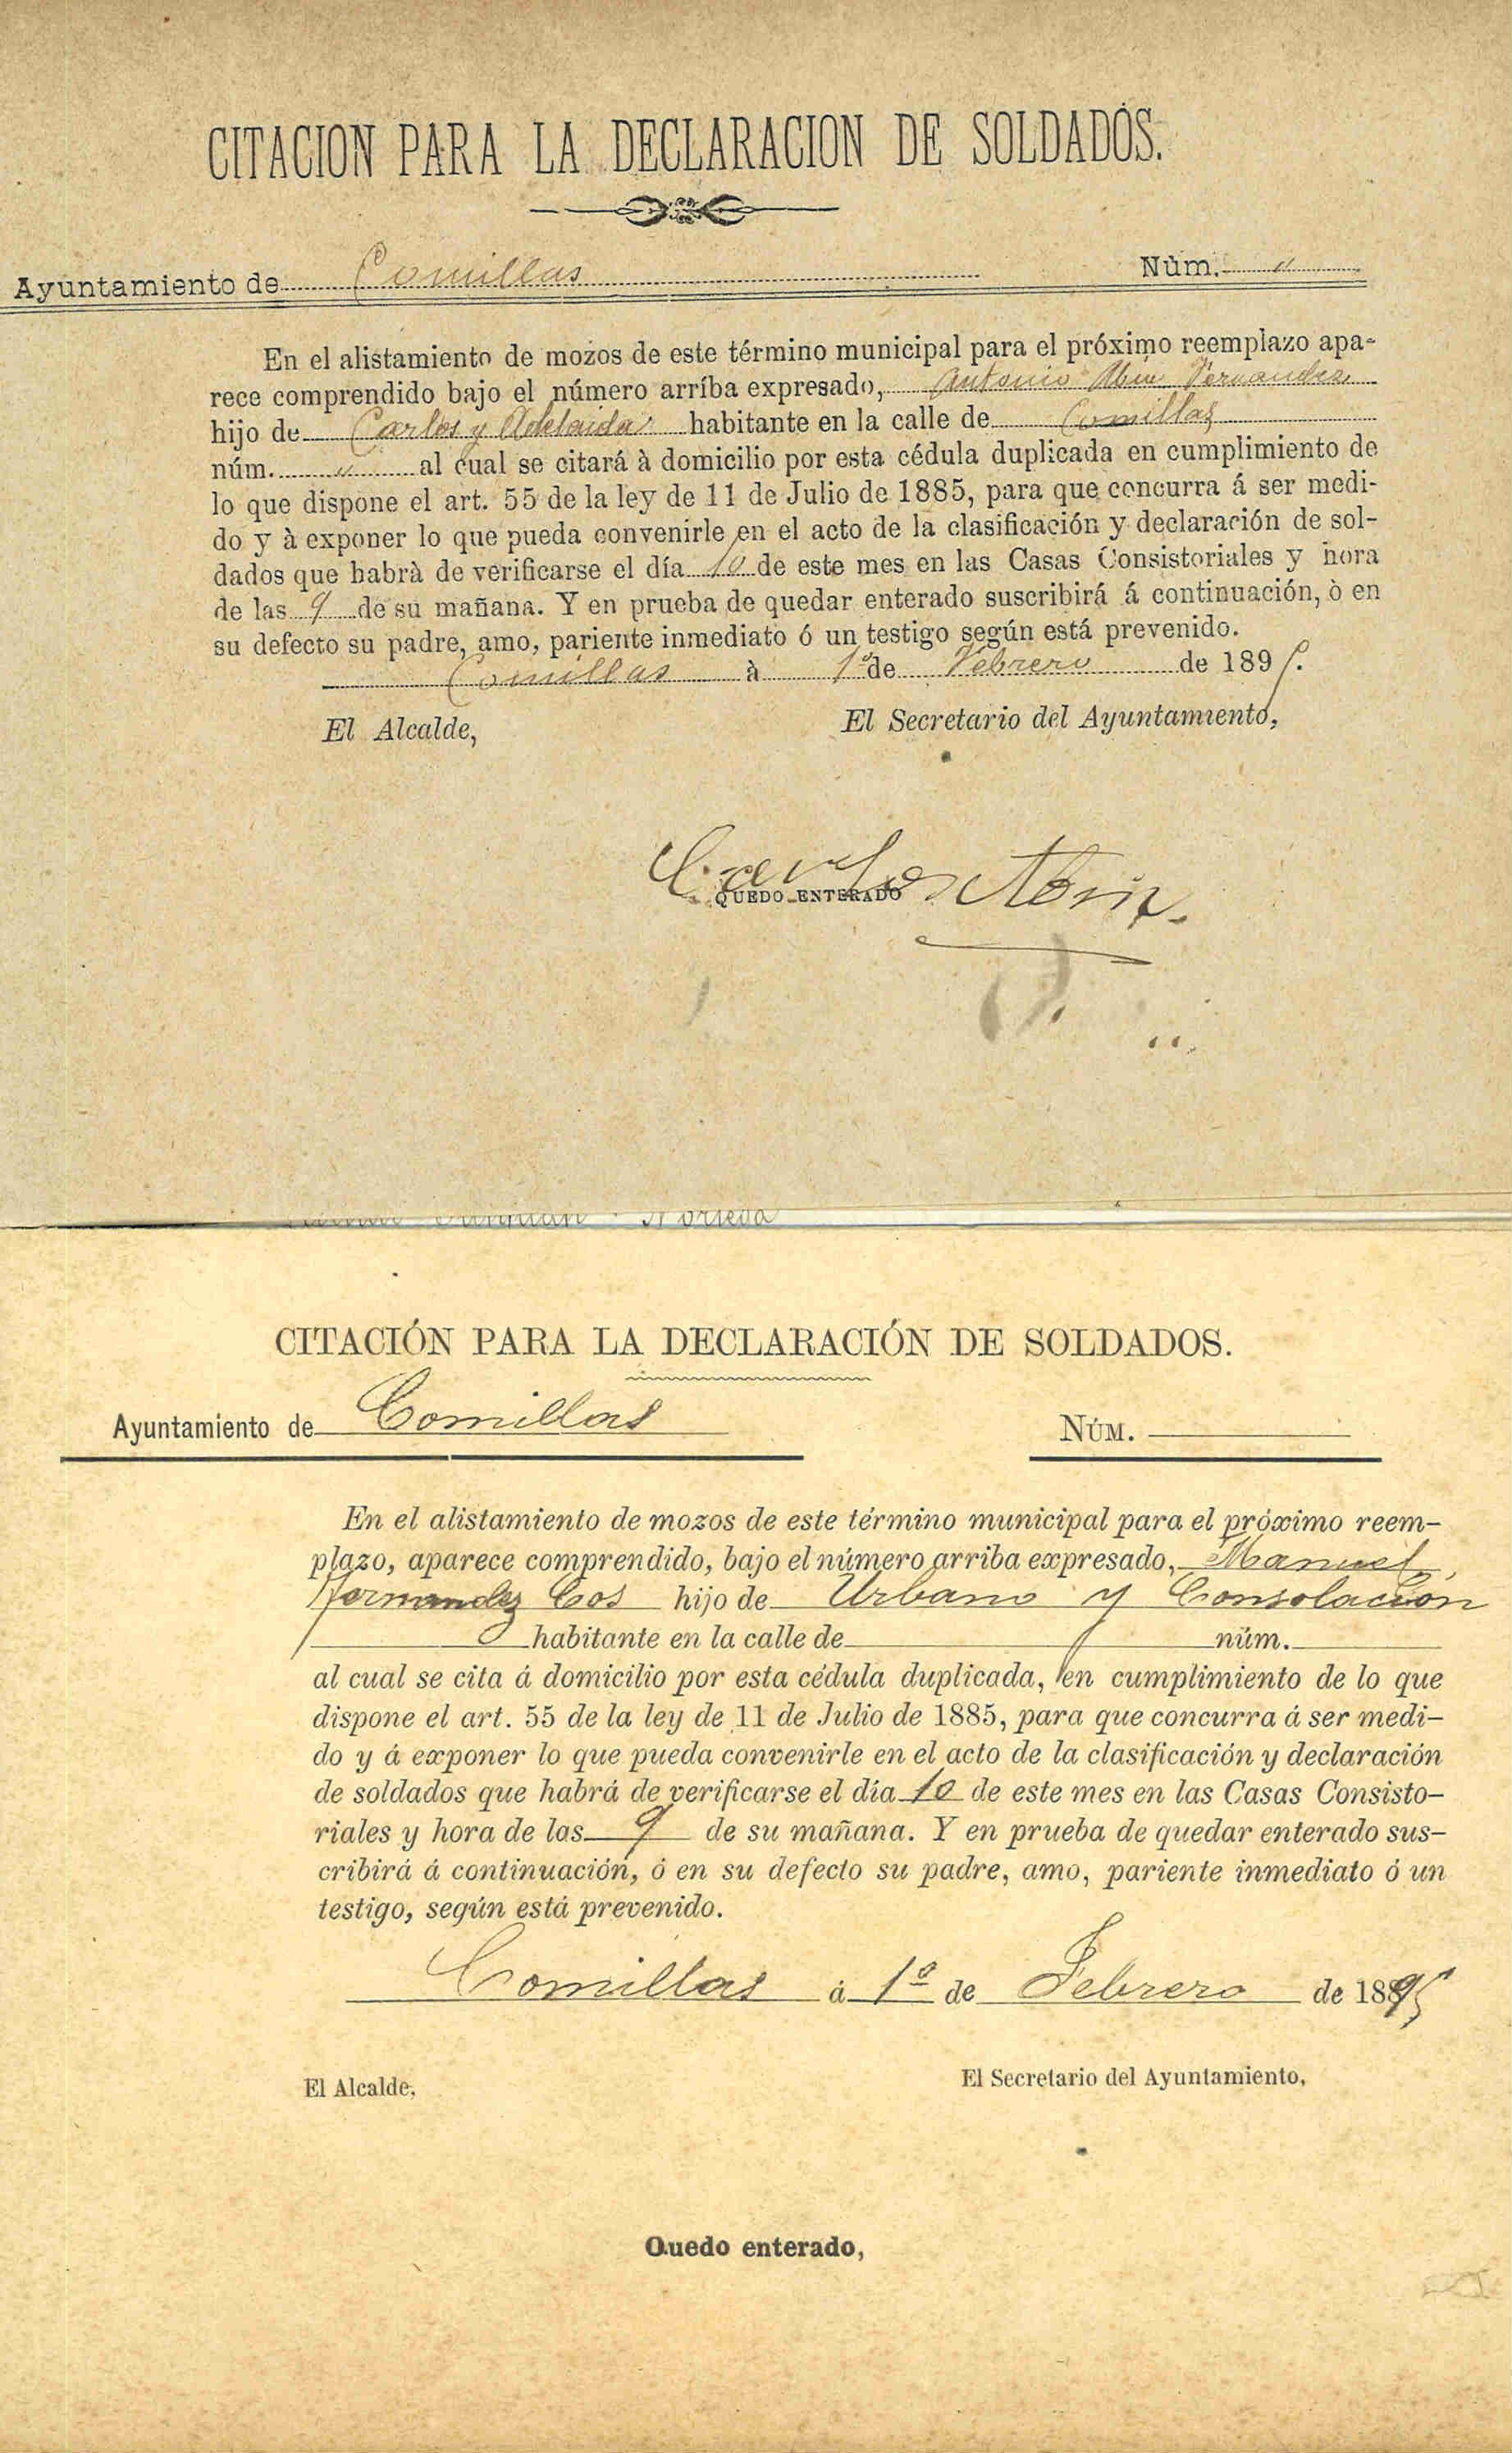 CITACION PARA LA DECLARACION DE SOLDADOS.
Ayuntamiento de Comillas Núm. "
En el alistamiento de mozos de este término municipal para el próximo reemplazo apa-
rece comprendido bajo el número arríba expresado, Antonio Abin Fernandez
hijo de Carlos y Adelaida habitante en la calle de Comillas
núm. " al cual se citará à domicilio por esta cédula duplicada en cumplimiento de
lo que dispone el art. 55 de la ley de 11 de Julio de 1885, para que concurra á ser medi-
do y à exponer lo que pueda convenirle en el acto de la clasificación y declaración de sol-
dados que habrà de verificarse el día 10 de este mes en las Casas Consistoriales y hora
de las 9 de su mañana. Y en prueba de quedar enterado suscribirá á continuación, ò en
su defecto su padre, amo, pariente inmediato ó un testigo según está prevenido.
Comillas à 1º de Febrero de 1895.
El Alcalde,
El Secretario del Ayuntamiento,
Carlos Abin
QUEDO ENTERADO
Noriega
CITACIÓN PARA LA DECLARACIÓN DE SOLDADOS.
Ayuntamiento de Comillas NÚM.
En el alistamiento de mozos de este término municipal para el próximo reem-
plazo, aparece comprendido, bajo el número arriba expresado, Manuel
Fernandez Cos hijo de Urbano y Consolación
habitante en la calle de núm.
al cual se cita á domicilio por esta cédula duplicada, en cumplimiento de lo que
dispone el art. 55 de la ley de 11 de Julio de 1885, para que concurra á ser medi-
do y á exponer lo que pueda convenirle en el acto de la clasificación y declaración
de soldados que habrá de verificarse el día 10 de este mes en las Casas Consisto-
riales y hora de las 9 de su mañana. Y en prueba de quedar enterado sus-
cribirá á continuación, ó en su defecto su padre, amo, pariente inmediato ó un
testigo, según está prevenido.
Comillas á 1º de Febrero de 1895
El Alcalde,
El Secretario del Ayuntamiento,
Quedo enterado,